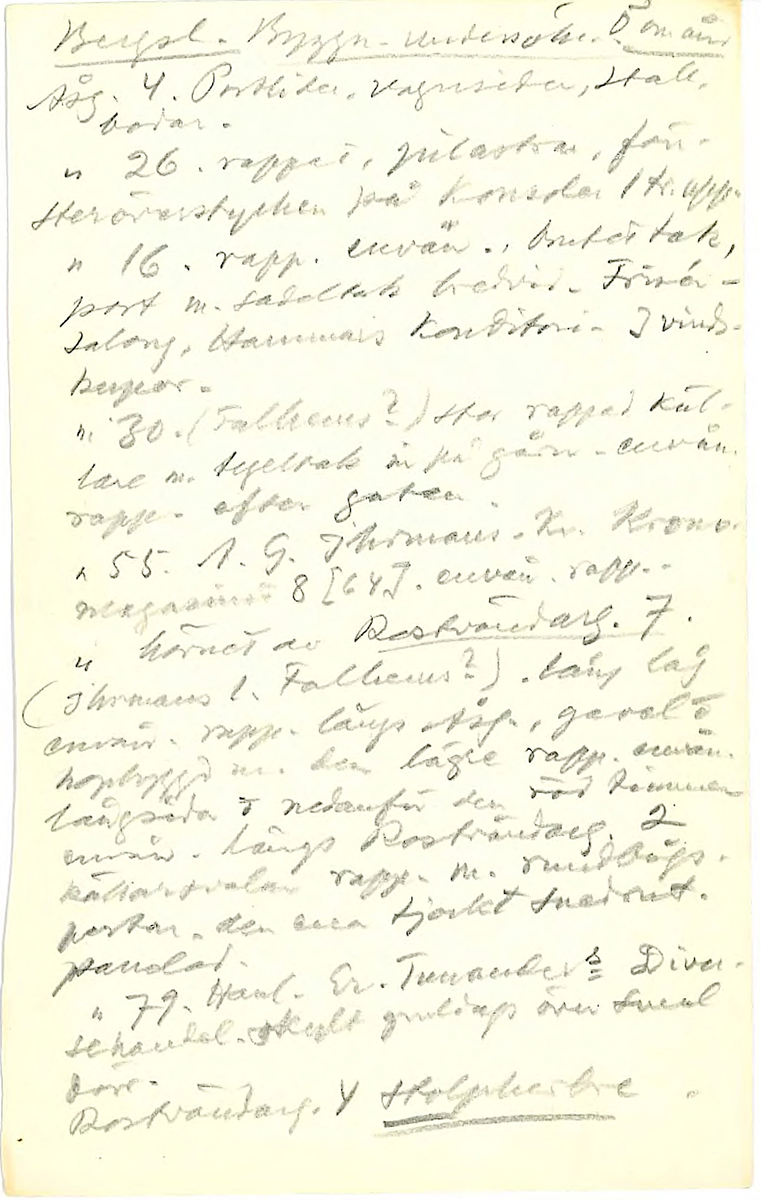 Bergsl. Byggn. undersökn.
Åsg. 4. Portlider, vagnslider, stall,
bodar.
" 26. rappat, pilastrar, fön-
steröverstycken på konsoler 1 tr. upp.
" 16. rapp. envån., brutet tak,
port m. sadeltak bredvid. Frisér-
salong, Hammars Konditori. 3 vinds-
kupor.
" 30. (Falhems?) stor rappad käl-
lare m. tegeltak in på gårn. envån.
rapp. efter gatan.
" 55. A. G. Ihrmans. Kv. Krono-
magasinet 8 [64]. envån. rapp.
" hörnet av Rostvändareg. 7.
(Ihrmans l. Falhems?). lång låg
envån. rapp. längs Åsg., gavel o
hopbyggd m. den lägre rapp. envån.
långsida o nedanför den röd timmer
envån. längs Rostvändareg. 2
källarsvalar rapp. m. rundbågs-
portar. den ena tjockt snedrut-
panelad.
" 79. Handl. Er. Tunanders Diver-
sehandel. Skylt över smal
dörr.
Rostvändareg. 4 Stolpherbre.